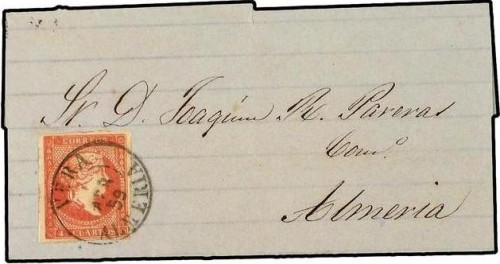 Sr. D. Joaquin R. Paveras
Com.º
Almeria
CORREOS
VERA
59
ALMERIA
4 CUARTOS